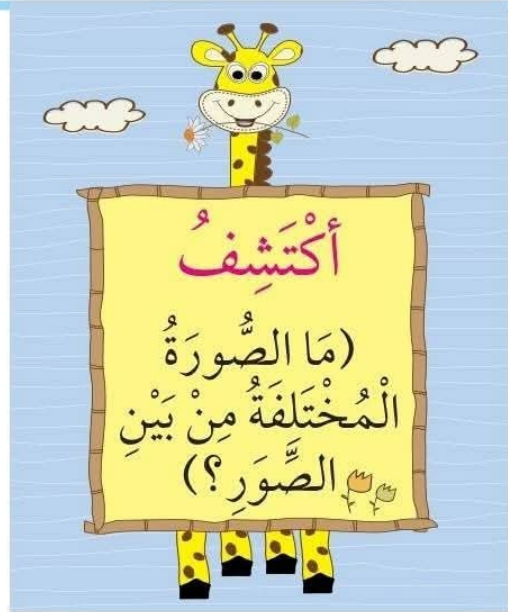 أَكْتَشِفُ
(مَا الصُّورَةُ
الْمُخْتَلِفَةُ مِنْ بَيْنِ
الصُّوَرِ؟)